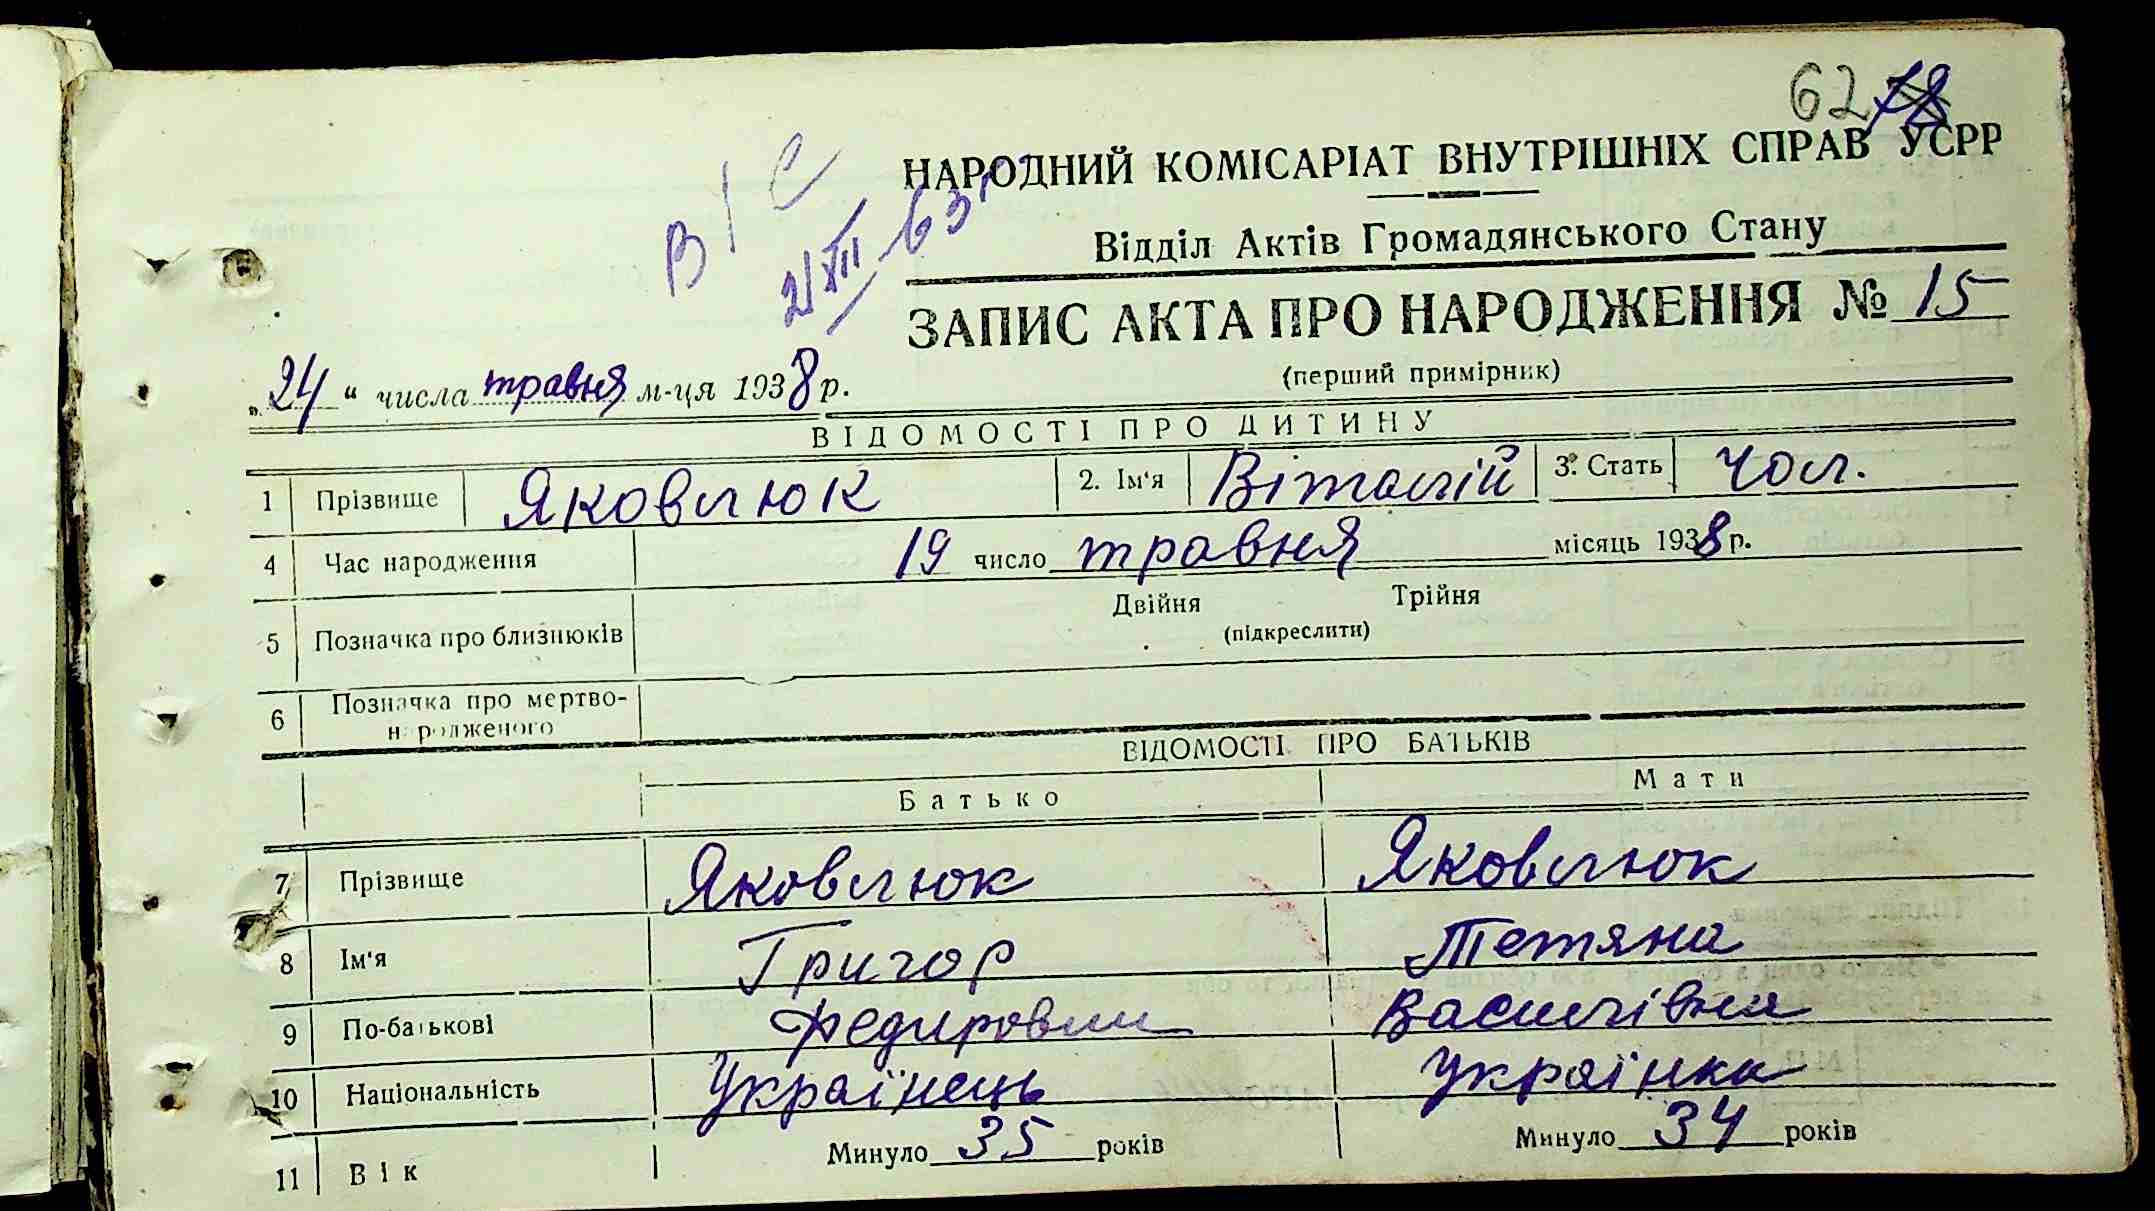 62 78
НАРОДНИЙ КОМІСАРІАТ ВНУТРІШНІХ СПРАВ УСРР
Відділ Актів Громадянського Стану
В І С
21 XII 63 г.
ЗАПИС АКТА ПРО НАРОДЖЕННЯ № 15
(перший примірник)
„24“ числа травня м-ця 1938 р.
ВІДОМОСТІ ПРО ДИТИНУ
1 Прізвище Яковлюк 2. Ім'я Віталій 3. Стать чол.
4 Час народження 19 число травня місяць 1938 р.
Двійня Трійня
5 Позначка про близнюків (підкреслити)
6 Позначка про мертво-
народженого
ВІДОМОСТІ ПРО БАТЬКІВ
Батько Мати
7 Прізвище Яковлюк Яковлюк
8 Ім'я Григор Тетяна
9 По-батькові Федорович Василівна
10 Національність Українець Українка
11 Вік Минуло 35 років Минуло 34 років